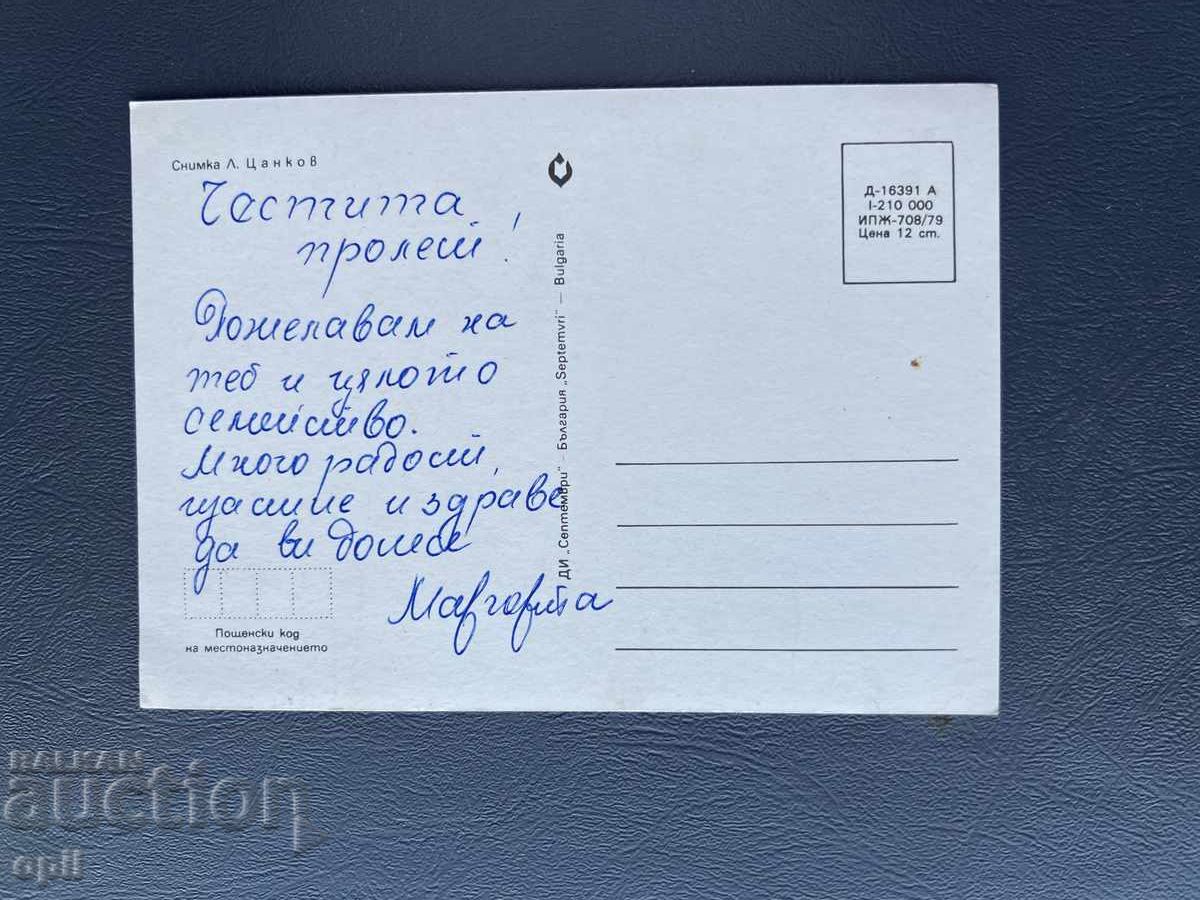 Снимка Л. Цанков
Честита
пролет!
Пожелавам на
теб и цялото
семейство.
Много радост,
щастие и здраве
да ви донесе
Маргарита
Пощенски код
на местоназначението
ДИ „Септември" – България „Septemvri" – Bulgaria
Д-16391 А
I-210 000
ИПЖ-708/79
Цена 12 ст.
BALKAN
auction
opil